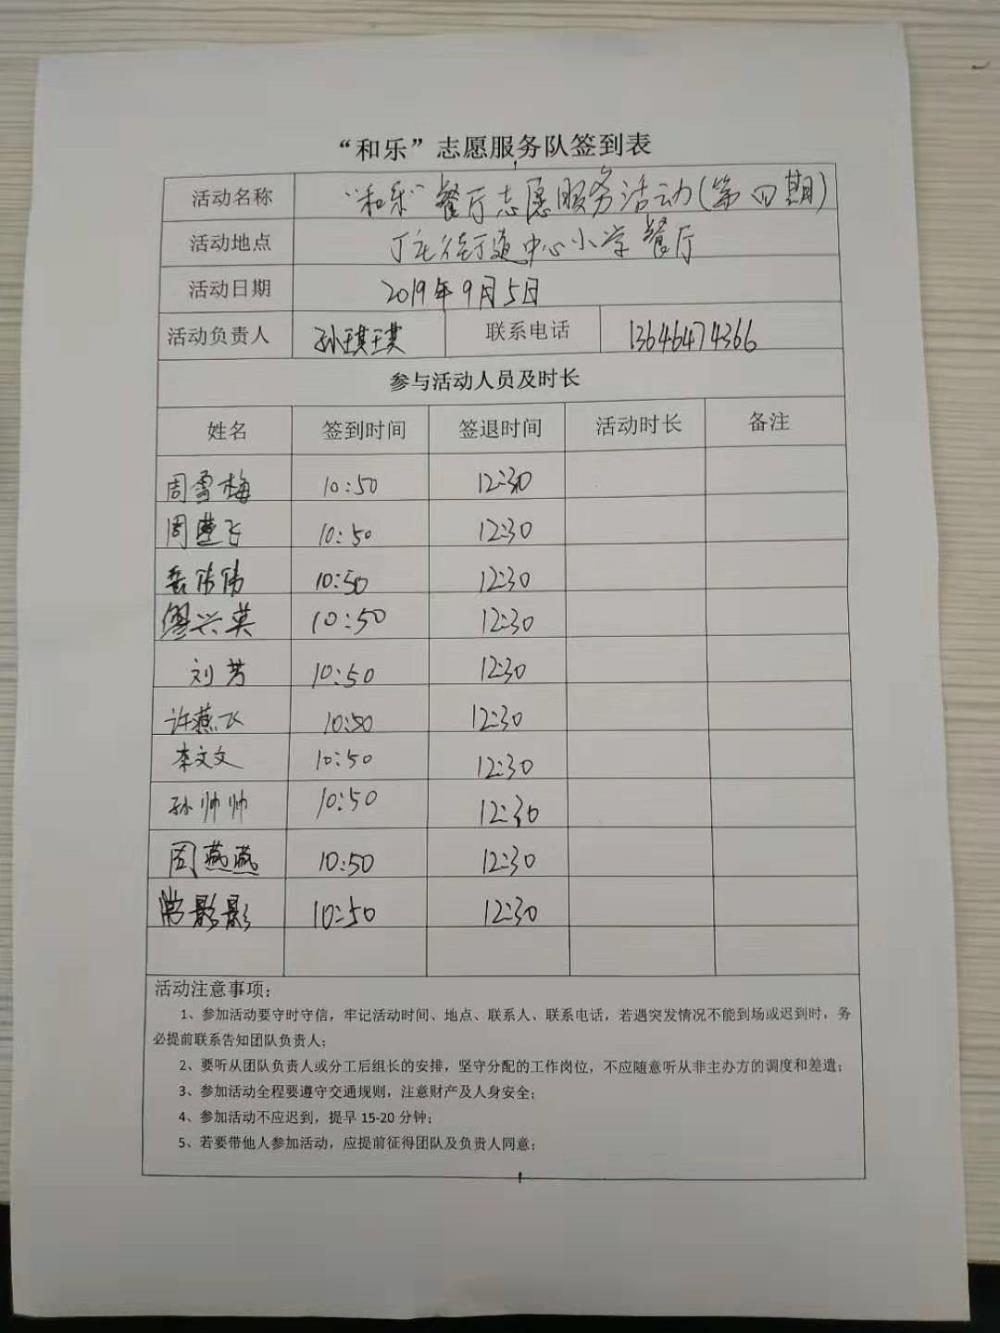 “和乐”志愿服务队签到表
活动名称 “和乐”餐厅志愿服务活动(第四期)
活动地点 丁庄街道中心小学餐厅
活动日期 2019年9月5日
活动负责人 孙琪琪 联系电话 13646474366
参与活动人员及时长
姓名 签到时间 签退时间 活动时长 备注
周雪梅 10:50 12:30
周燕飞 10:50 12:30
岳伟伟 10:50 12:30
缪兴英 10:50 12:30
刘芳 10:50 12:30
许燕飞 10:50 12:30
李文文 10:50 12:30
孙帅帅 10:50 12:30
周燕燕 10:50 12:30
常影影 10:50 12:30
活动注意事项：
1、参加活动要守时守信，牢记活动时间、地点、联系人、联系电话，若遇突发情况不能到场或迟到时，务
必提前联系告知团队负责人；
2、要听从团队负责人或分工后组长的安排，坚守分配的工作岗位，不应随意听从非主办方的调度和差遣；
3、参加活动全程要遵守交通规则，注意财产及人身安全；
4、参加活动不应迟到，提早 15-20 分钟；
5、若要带他人参加活动，应提前征得团队及负责人同意；